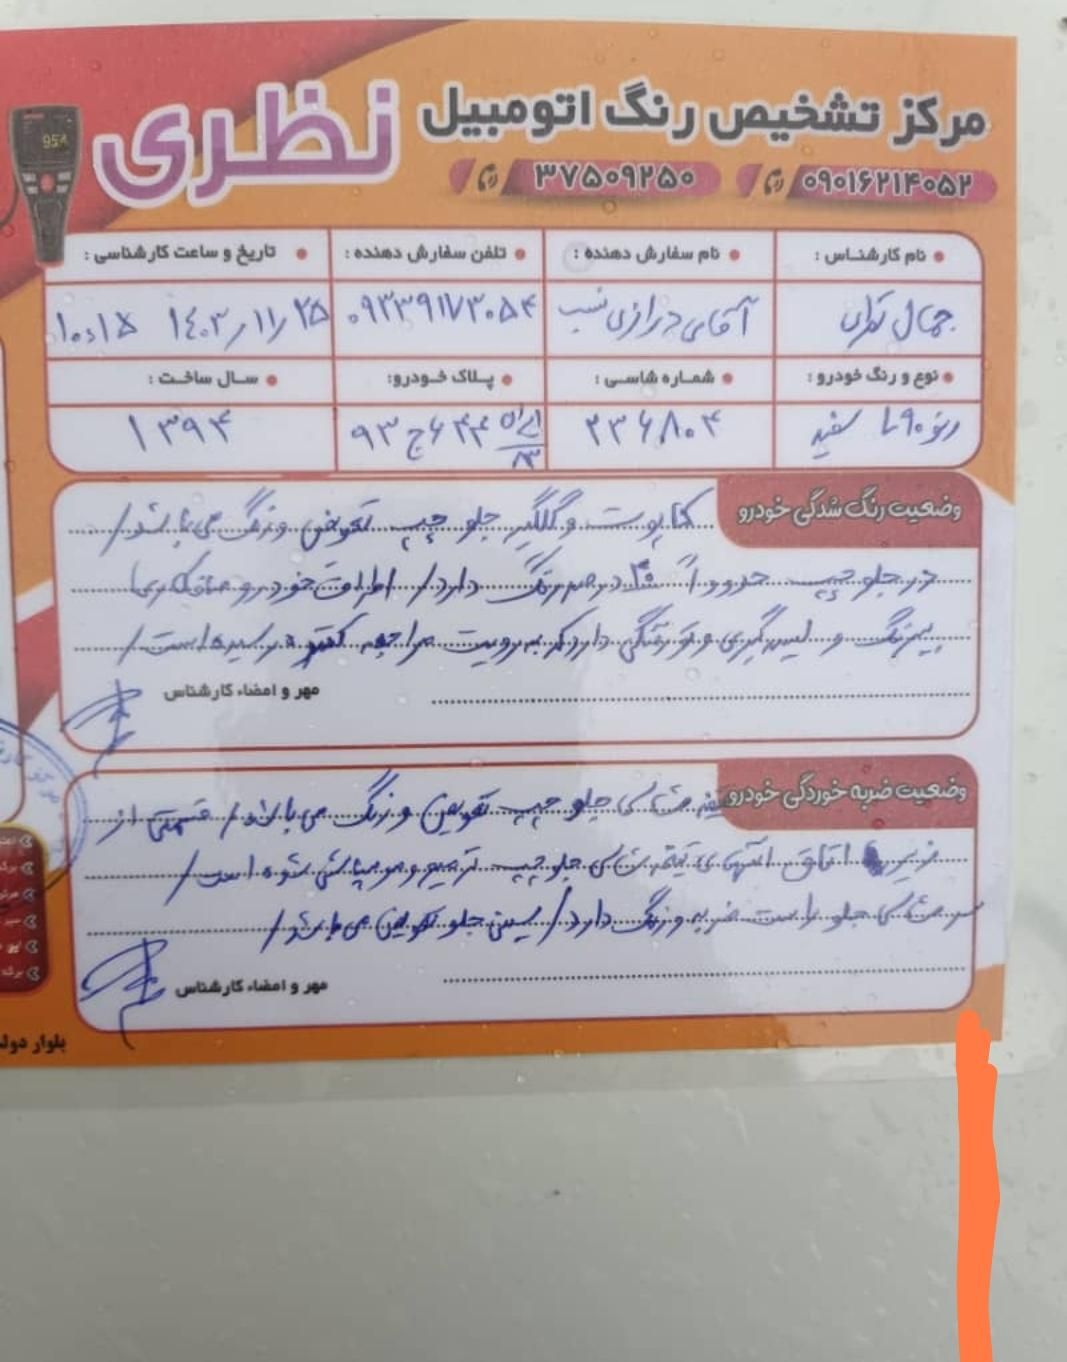 مرکز تشخیص رنگ اتومبیل نظری
۰۹۰۱۶۲۱۴۰۵۲ ۳۷۵۰۹۲۵۰
954
نام کارشناس : نام سفارش دهنده : تلفن سفارش دهنده : تاریخ و ساعت کارشناسی :
جمال آقای درازی نسب ۰۹۳۳۹۱۷۳۰۵۴ ۱۴۰۳/۱۱/۲۵ ۱۰:۱۵
نوع و رنگ خودرو : شماره شاسی : پلاک خودرو: سال ساخت :
رنو ل۹۰ سفید ۲۳۶۸۰۴ ۹۳ج۶۴۴ ایران ۸۳ ۱۳۹۴
وضعیت رنگ شدگی خودرو
کاپوت و گلگیر جلو چپ تعویض و رنگ می باشد/
در جلو چپ حدوداً ۴۰ درصد رنگ دارد/ اطراف خودرو صافکاری
بیرنگ و لیسه گیری و تورفتگی دارد که به رویت مراجعه کننده رسیده است/
مهر و امضاء کارشناس
وضعیت ضربه خوردگی خودرو
شاسی جلو چپ تعویض و رنگ می باشد/ قسمتی از
زیر اتاق انتهای شاسی جلو چپ ترمیم و مو پاشی شده است/
سر شاسی جلو راست ضربه و رنگ دارد/ سینی جلو تعویض می باشد/
مهر و امضاء کارشناس